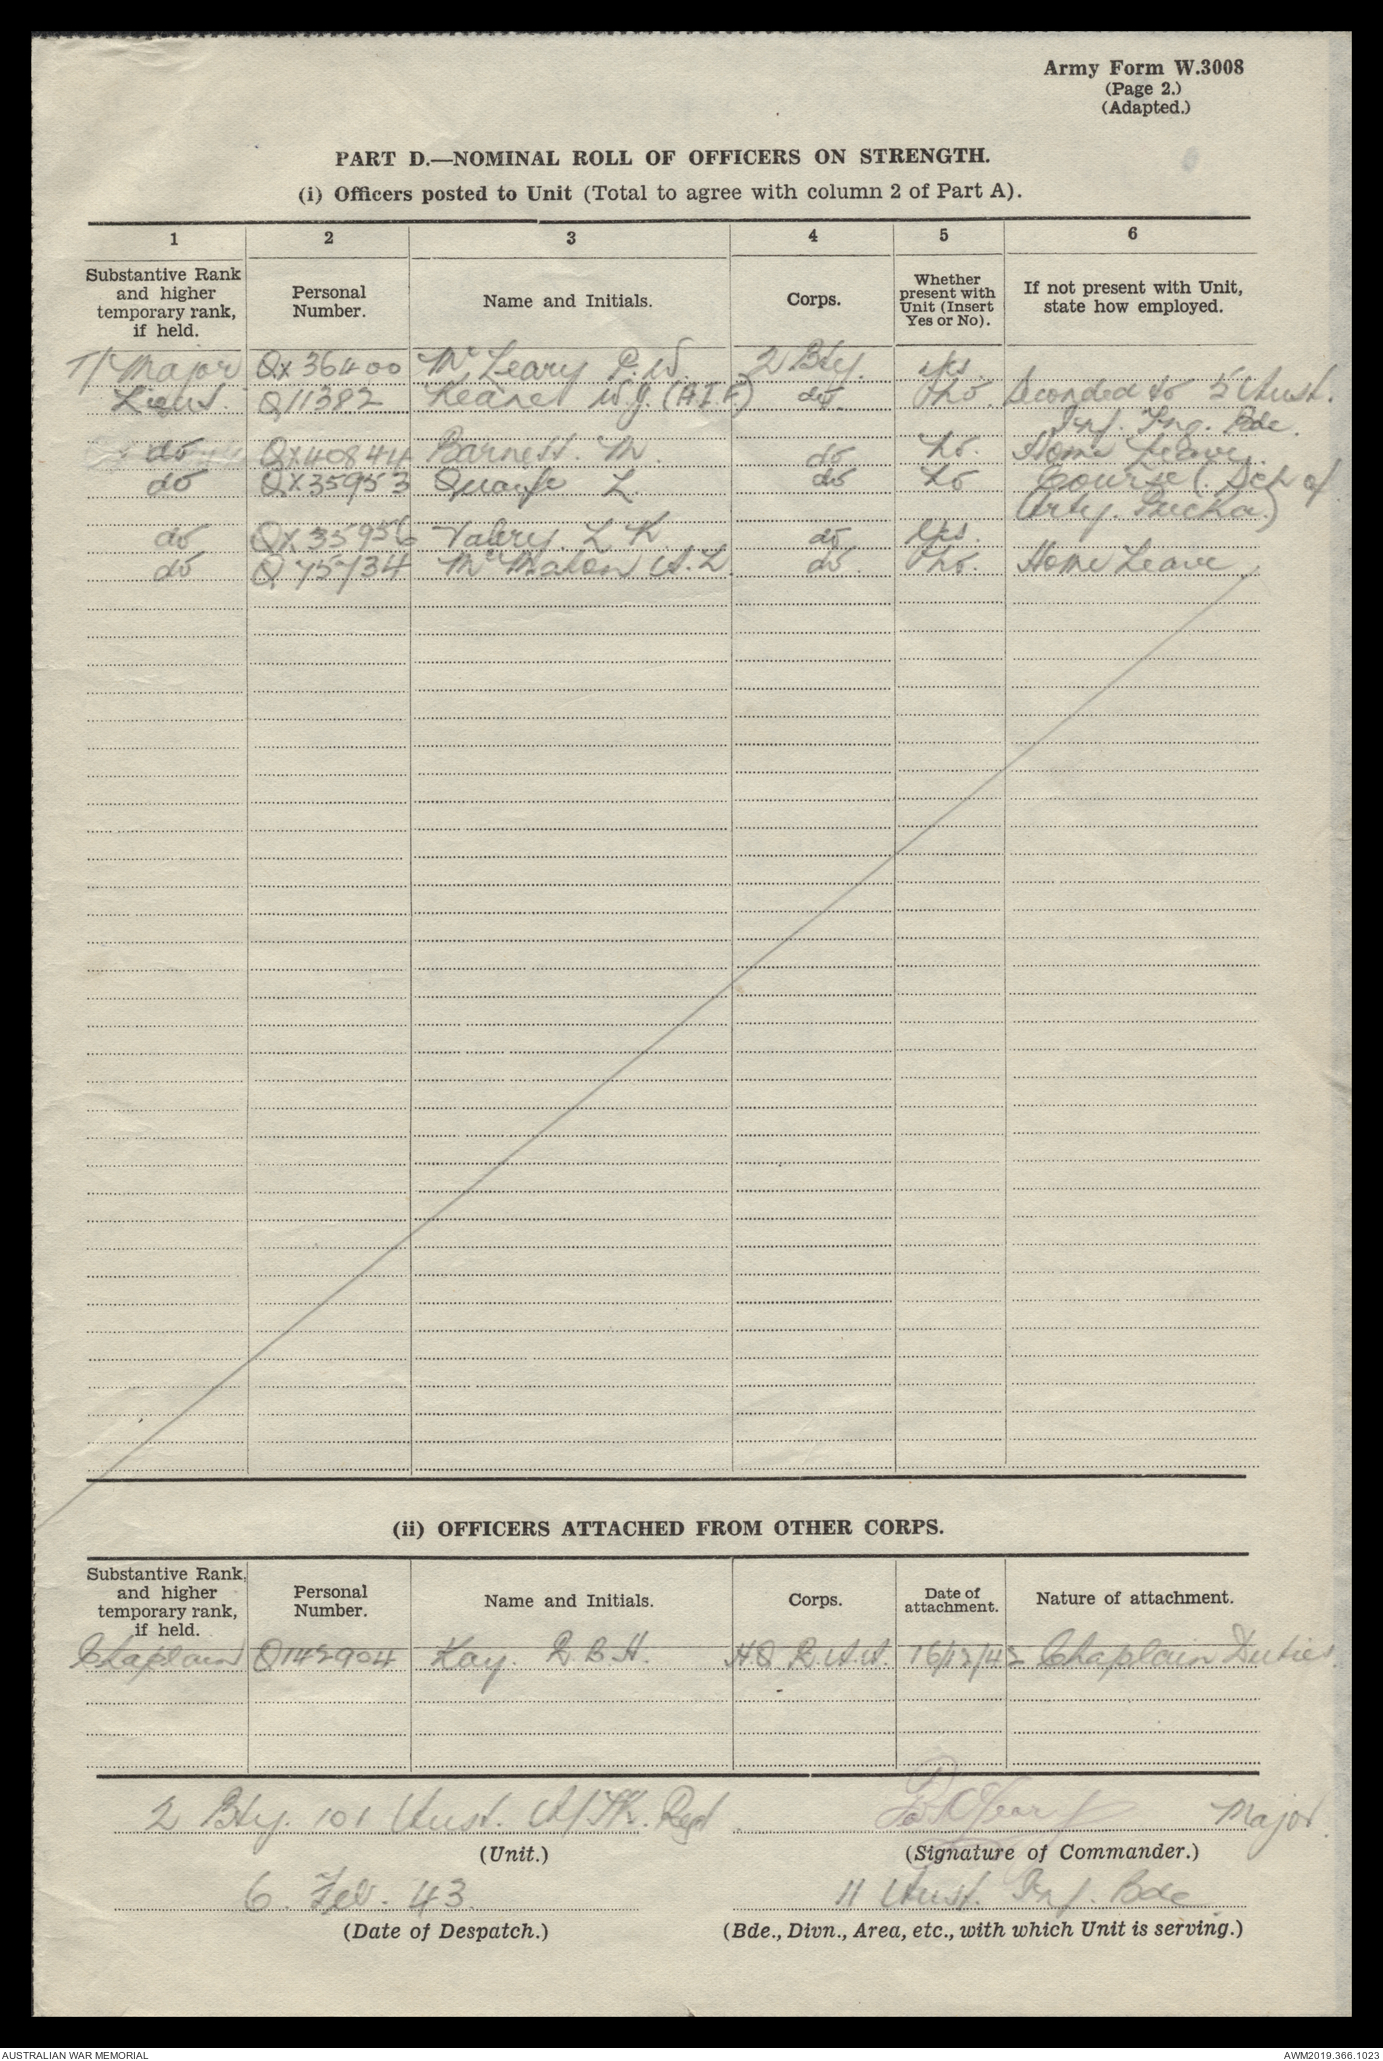 Army Form W.3008
(Page 2.)
(Adapted.)
PART D.—NOMINAL ROLL OF OFFICERS ON STRENGTH.
(i) Officers posted to Unit (Total to agree with column 2 of Part A).
1 2 3 4 5 6
Substantive Rank and higher temporary rank, if held. Personal Number. Name and Initials. Corps. Whether present with Unit (Insert Yes or No). If not present with Unit, state how employed.
T/Major QX36400 McLeary P. W. 2 Bty. Yes.
Lieut. Q11382 W. J. (A.I.F.) do. No. Seconded to 5 Aust.
Inf. Trg. Bde.
do QX40844 Barnett. M. do No. Home Leave.
do QX35953 Quaife L. do No Course (Sch of
Arty. Pucka.)
do QX35956 Valery. L K. do Yes.
do Q75734 McMahon A. L. do. No. Home Leave
(ii) OFFICERS ATTACHED FROM OTHER CORPS.
Substantive Rank, and higher temporary rank, if held. Personal Number. Name and Initials. Corps. Date of attachment. Nature of attachment.
Chaplain Q142904 Kay. R B H. HQ R.A.A. 16/12/42 Chaplain Duties
2 Bty. 101 Aust. A/TK. Regt. Major.
(Unit.) (Signature of Commander.)
6. Feb. 43. 11 Aust. Inf. Bde
(Date of Despatch.) (Bde., Divn., Area, etc., with which Unit is serving.)
AUSTRALIAN WAR MEMORIAL AWM2019.366.1023